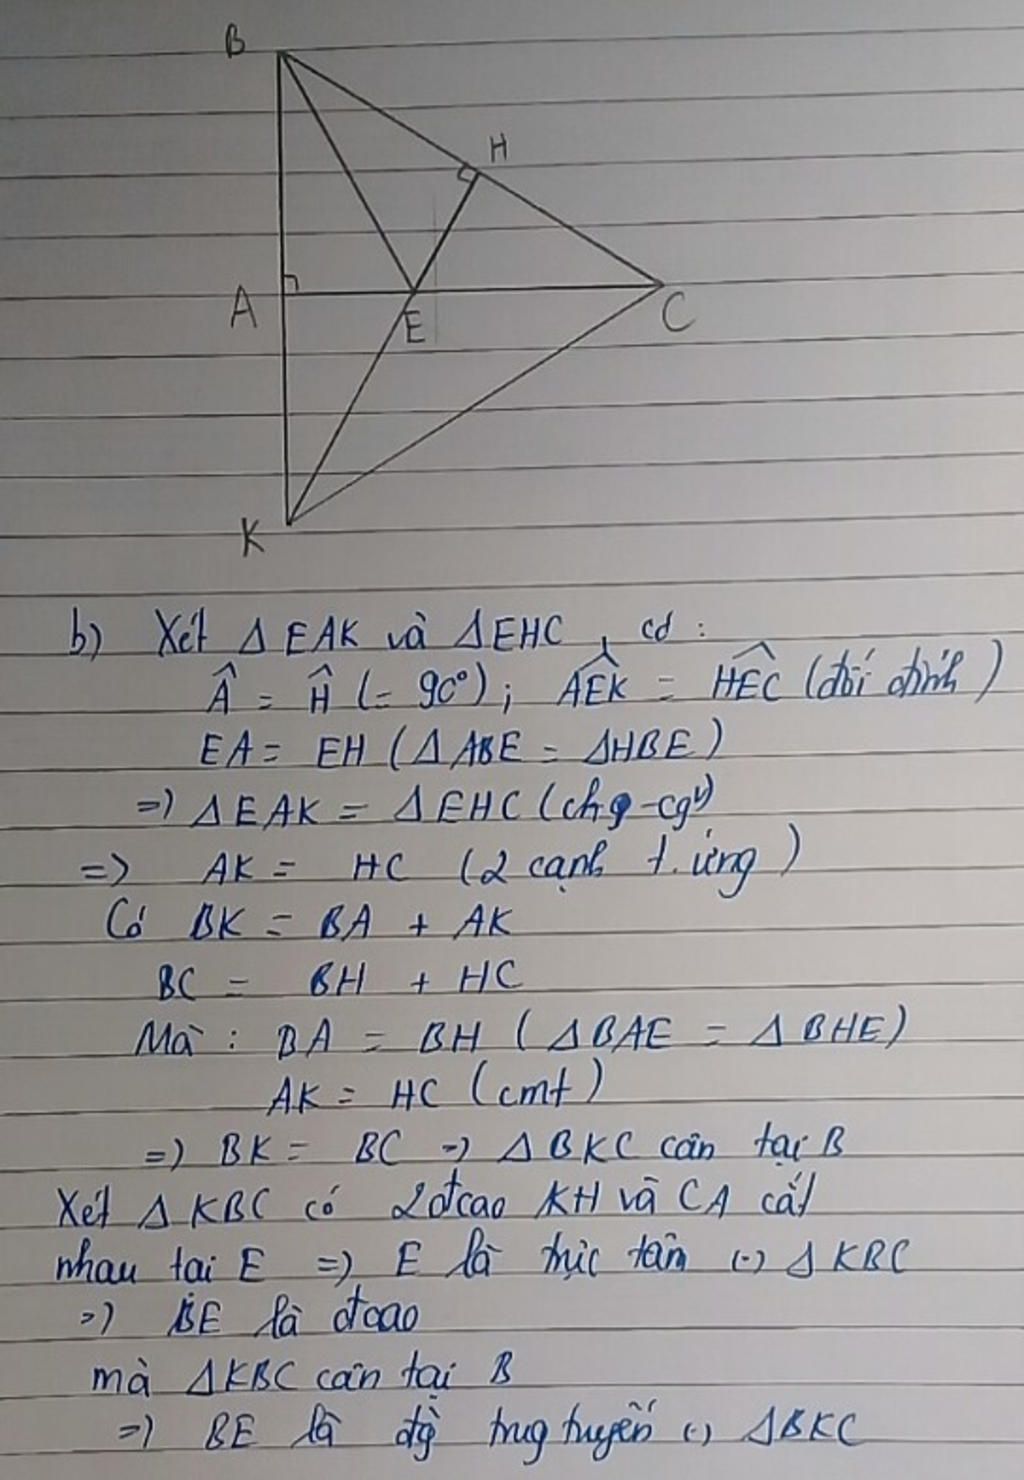 B
H
A
E
C
K
b) Xét Δ EAK và ΔEHC, có :
Â = Ĥ (= 90°) ; AÊK = HÊC (đối đỉnh)
EA = EH (Δ ABE = ΔHBE)
=) ΔEAK = ΔEHC (
=) AK = HC (2 cạnh t.ứng)
Có BK = BA + AK
BC = BH + HC
Mà : BA = BH (ΔBAE = ΔBHE)
AK = HC (cmt)
=) BK = BC => ΔBKC cân tại B
Xét Δ KBC có 2 đcao KH và CA cắt
nhau tại E =) E là trực tâm (.) Δ KBC
=) BE là đcao
mà ΔKBC cân tại B
=) BE là đg trug tuyến (.) ΔBKC